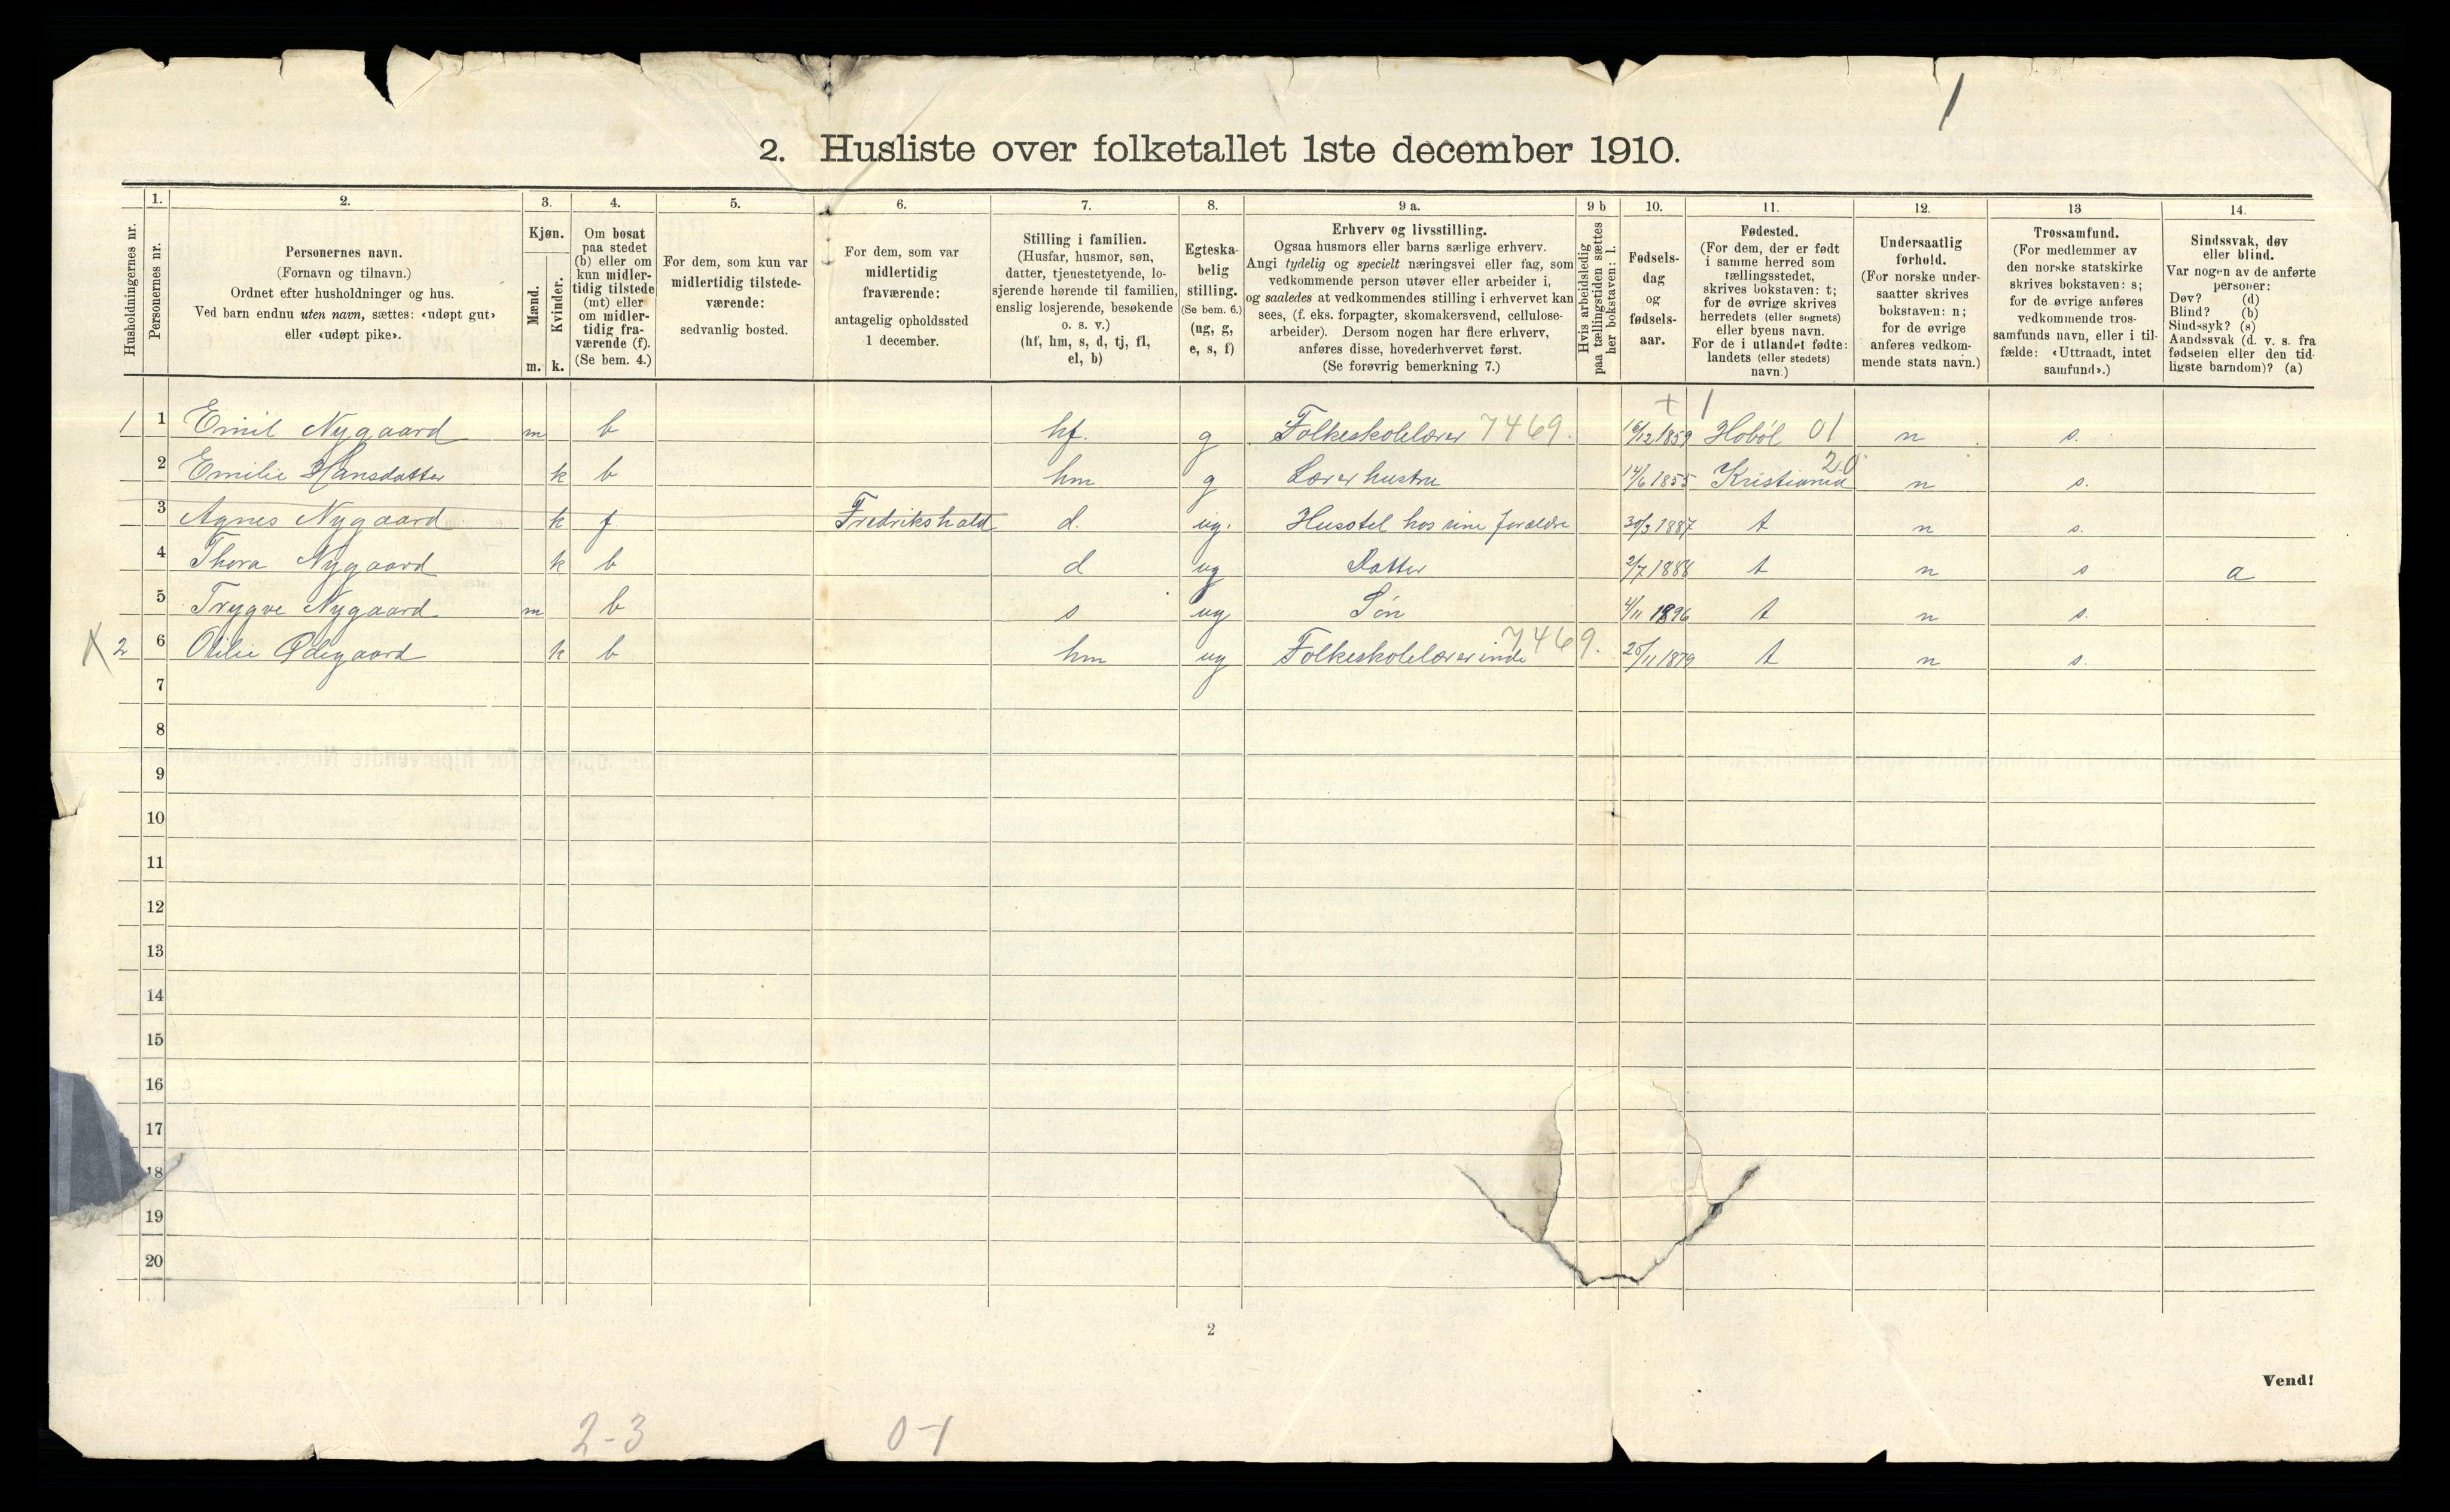 1
2. Husliste over folketallet 1ste december 1910.
Husholdningernes nr.
1.
Personernes nr.
2.
Personernes navn.
(Fornavn og tilnavn.)
Ordnet efter husholdninger og hus.
Ved barn endnu uten navn, sættes: «udøpt gut»
eller «udøpt pike».
3.
Kjøn.
Mænd.
Kvinder.
m. k.
4.
Om bosat
paa stedet
(b) eller om
kun midler-
tidig tilstede
(mt) eller
om midler-
tidig fra-
værende (f).
(Se bem. 4.)
5.
For dem, som kun var
midlertidig tilstede-
værende:
sedvanlig bosted.
6.
For dem, som var
midlertidig
fraværende:
antagelig opholdssted
1 december.
7.
Stilling i familien.
(Husfar, husmor, søn,
datter, tjenestetyende, lo-
sjerende hørende til familien,
enslig losjerende, besøkende
o. s. v.)
(hf, hm, s, d, tj, fl,
el, b)
8.
Egteska-
belig
stilling.
(Se bem. 6.)
(ug, g,
e, s, f)
9 a.
Erhverv og livsstilling.
Ogsaa husmors eller barns særlige erhverv.
Angi tydelig og specielt næringsvei eller fag, som
vedkommende person utøver eller arbeider i,
og saaledes at vedkommendes stilling i erhvervet kan
sees, (f. eks. forpagter, skomakersvend, cellulose-
arbeider). Dersom nogen har flere erhverv,
anføres disse, hovederhvervet først.
(Se forøvrig bemerkning 7.)
9 b
Hvis arbeidsledig
paa tællingstiden sættes
her bokstaven: l.
10.
Fødsels-
dag
og
fødsels-
aar.
11.
Fødested.
(For dem, der er født
i samme herred som
tællingsstedet,
skrives bokstaven: t;
for de øvrige skrives
herredets (eller sognets)
eller byens navn.
For de i utlandet fødte:
landets (eller stedets)
navn.)
12.
Undersaatlig
forhold.
(For norske under-
saatter skrives
bokstaven: n;
for de øvrige
anføres vedkom-
mende stats navn.)
13
Trossamfund.
(For medlemmer av
den norske statskirke
skrives bokstaven: s;
for de øvrige anføres
vedkommende tros-
samfunds navn, eller i til-
fælde: «Uttraadt, intet
samfund».)
14.
Sindssvak, døv
eller blind.
Var nogen av de anførte
personer:
Døv? (d)
Blind? (b)
Sindssyk? (s)
Aandssvak (d. v. s. fra
fødselen eller den tid-
ligste barndom)? (a)
+ 1
1 1 Emil Nygaard m b hf. g Folkeskolelærer 7469. 16/12 1859 Hobøl 01 n s.
2 Emilie Hansdatter k b hm g Lærerhustru 14/6 1855 Kristiania 20 n s.
3 Agnes Nygaard k f Fredrikshald d. ug. Husstel hos sine forældre 30/3 1887 t n s.
4 Thora Nygaard k b d ug Datter 2/7 1888 t n s a
5 Trygve Nygaard m b s ug Søn 4/11 1896 t n s.
X 2 6 Otilie Ødegaard k b hm ug Folkeskolelærerinde 7469. 25/11 1879 t n s.
7
8
9
10
11
12
13
14
15
16
17
18
19
20
2
Vend!
2-3 0-1